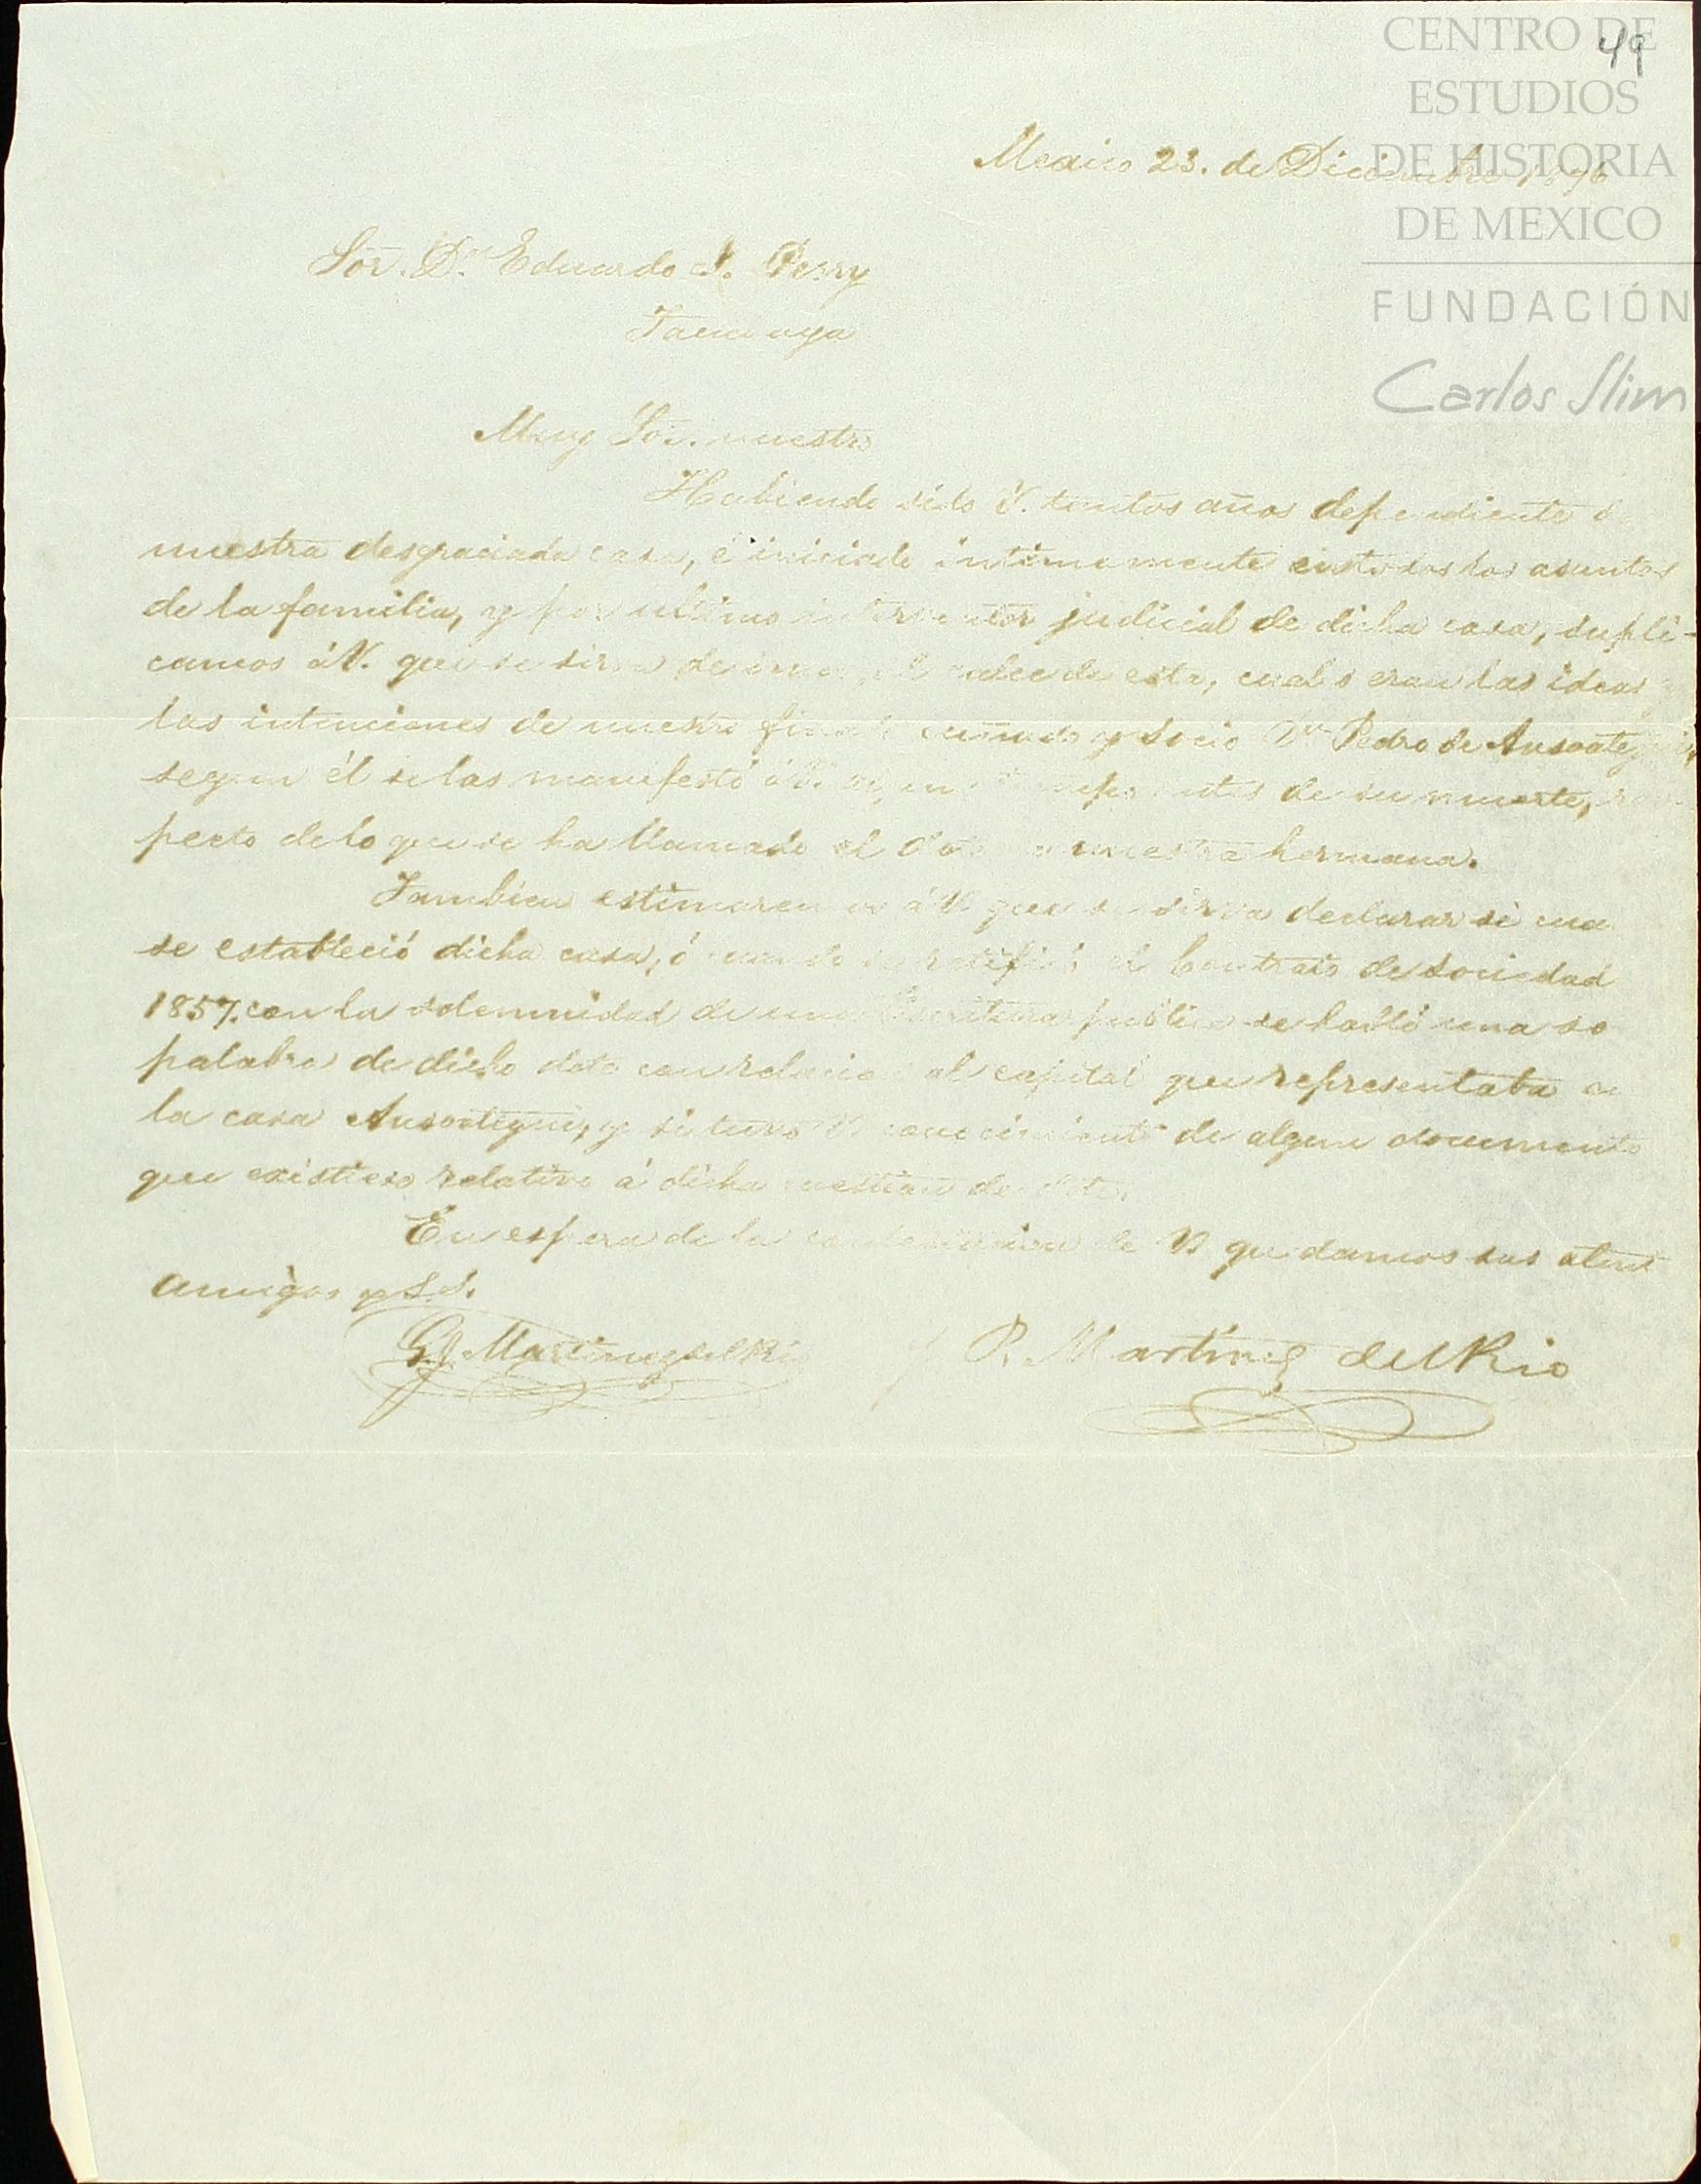 49
CENTRO DE
ESTUDIOS
DE HISTORIA
DE MEXICO
FUNDACIÓN
Carlos Slim
Mexico 23. de Diciembre
Sor. Dn. Eduardo J. Perry
Tacubaya
Muy Sor. nuestro
Habiendo sido V. tantos años dependiente
nuestra desgraciada casa, é iniciado intimamente en todos los asuntos
de la familia, y por ultimo interventor judicial de dicha casa, supli-
camos á V. que se sirva al calce de esta, cuales eran las ideas
las intenciones de nuestro cuñado y Socio Dn. Pedro de Ansoategui,
segun él se las manifestó á V. antes de su muerte,
pecto de lo que se ha llamado el dote nuestra hermana.
Tambien estimaremos á V. que se sirva declarar si cua
se estableció dicha casa, ó cuando se ratificó el Contrato de Sociedad
1857. con la solemnidad de una Escritura publica se habló una so
palabra de dicho dote con relacion al capital que representaba en
la casa Ansoategui, y si tuvo V. conocimiento de algun documento
que existiese relativo á dicha cuestion de dote.
En espera de la contestacion de V. quedamos sus atent
amigos y S.S.
G. Martinez del Rio
P. Martinez del Rio